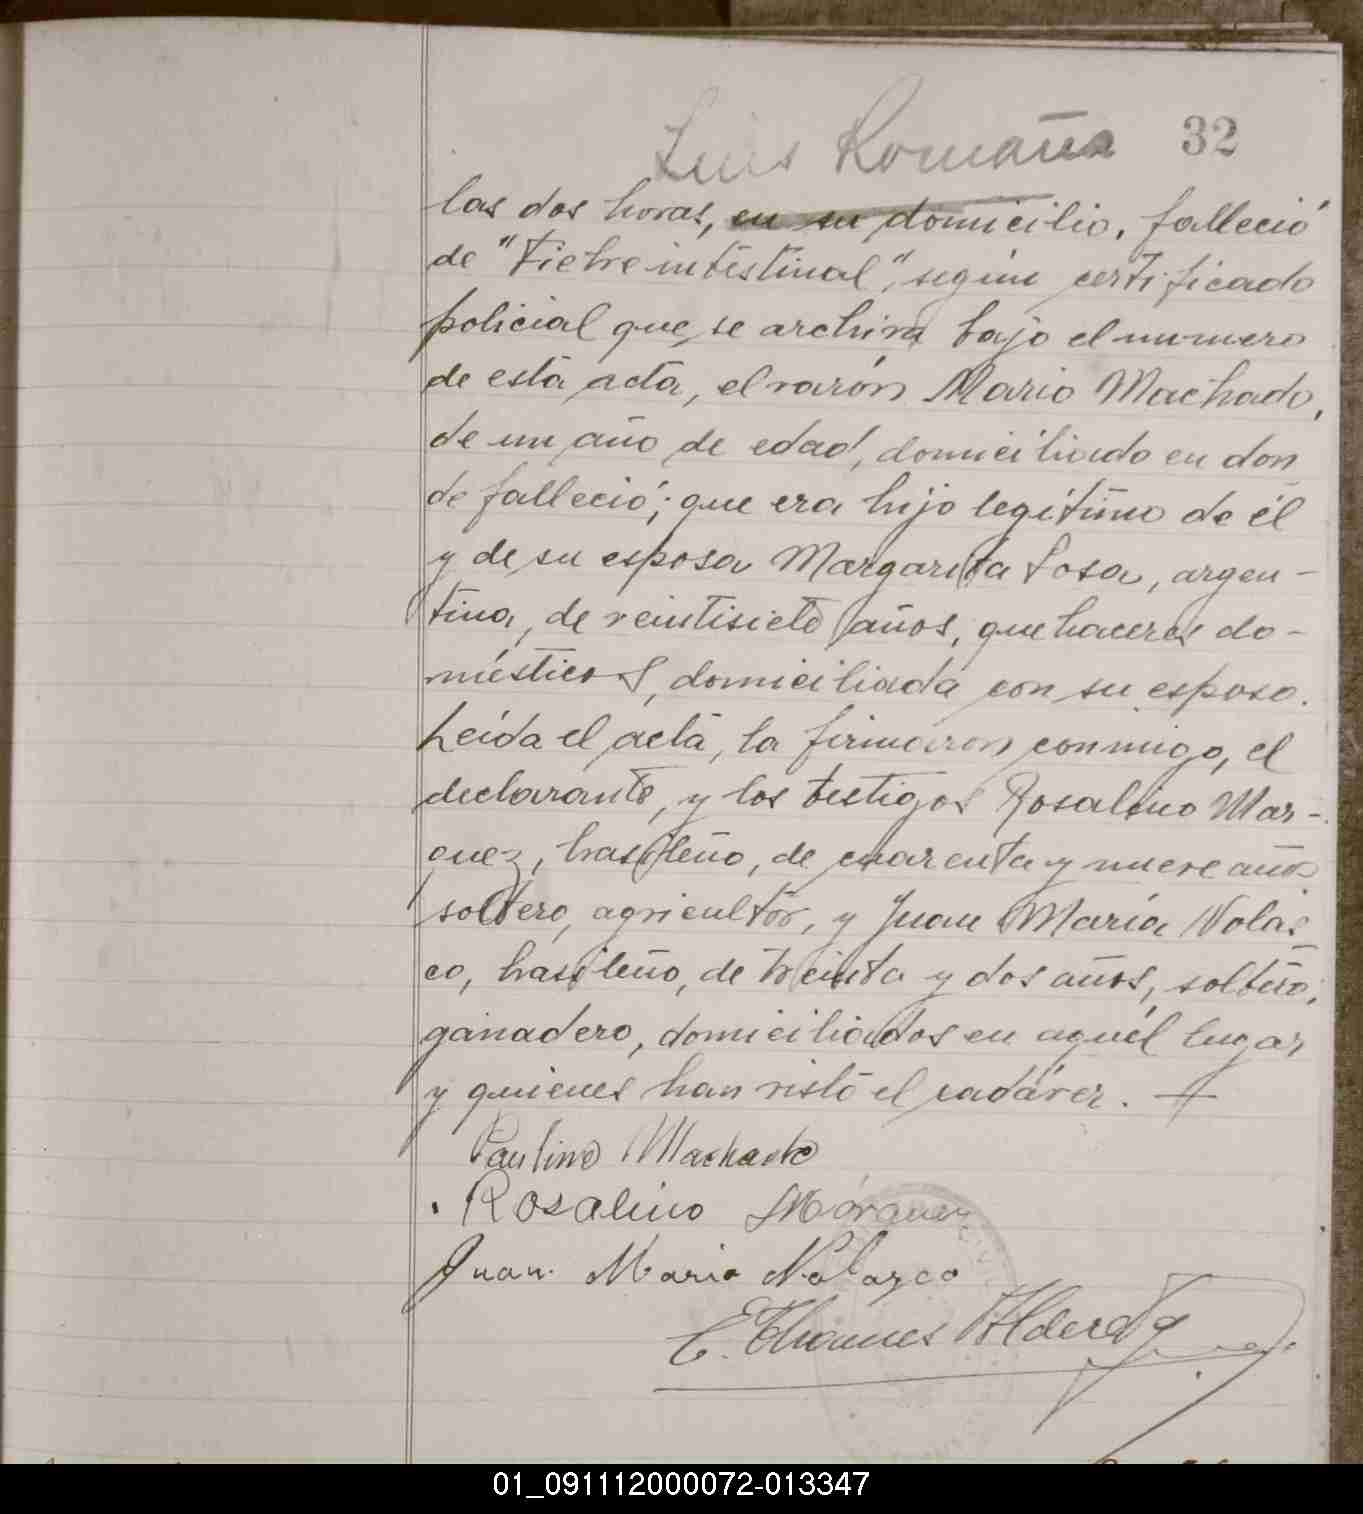 Luis Romaña 32
las dos horas, en su domicilio, falleció
de "Fiebre intestinal", según certificado
policial que se archiva bajo el numero
de esta acta, el varón Mario Machado,
de un año de edad, domiciliado en don
de falleció; que era hijo legítimo de él
y de su esposa Margarita Sosa, argen-
tina, de veintisiete años, quehaceres do-
mésticos, domiciliada con su esposo.
Leída el acta, la firmaron conmigo, el
declarante, y los testigos Rosalino Mar-
quez, brasileño, de cuarenta y nueve años
soltero, agricultor, y Juan María Nolas
co, brasileño, de treinta y dos años, soltero,
ganadero, domiciliados en aquél lugar
y quienes han visto el cadáver.
Paulino Machado
Rosalino Márquez
Juan Maria Nolazco
01_091112000072-013347